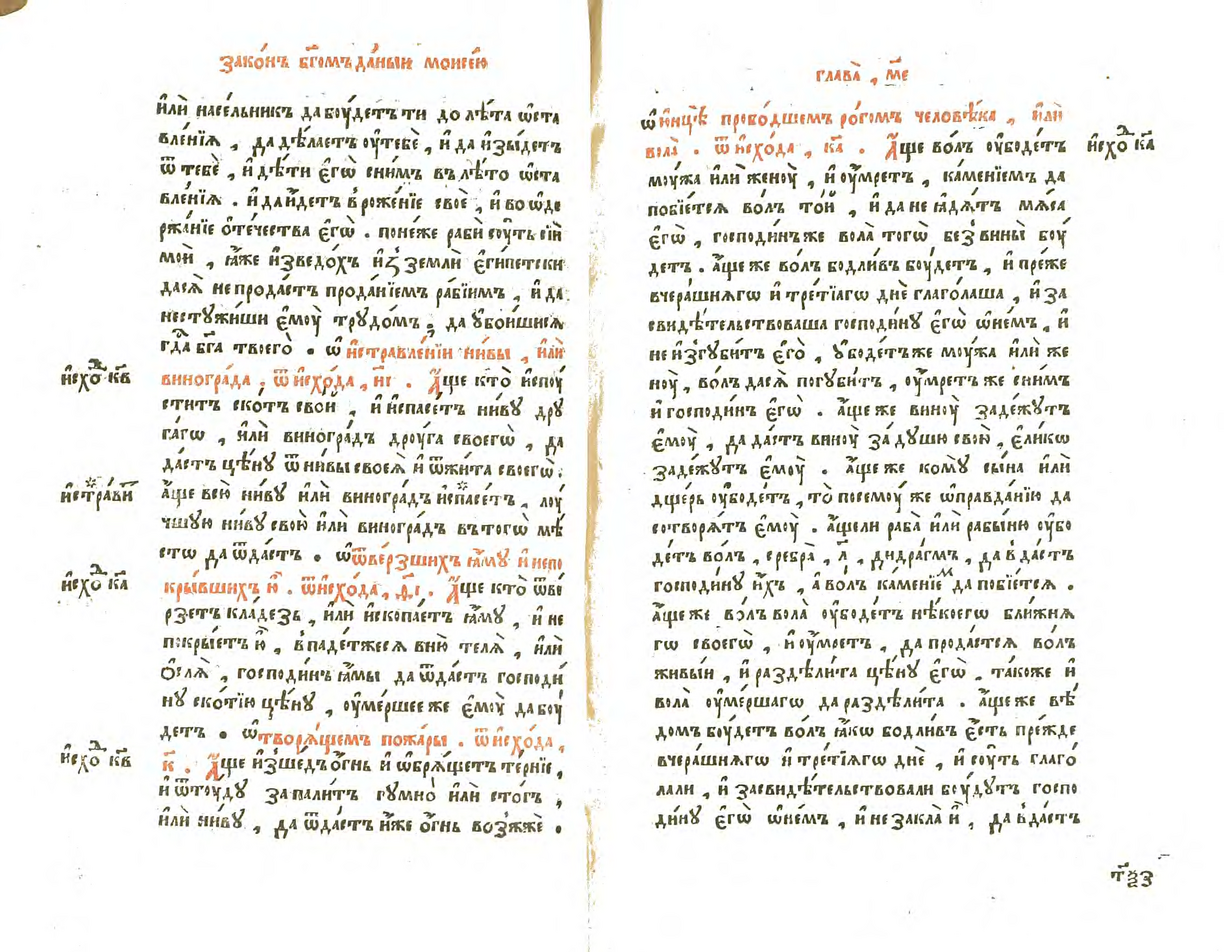 зако́нъ бг҃омъ да́ныи моисе́ю
и҆лѝ насе́льникъ да бꙋ́детъ ти до лѣ́та ѡ҆ста
вле́нїѧ , да дѣ́лаетъ ᲂу҆ тебѐ , и҆ да и҆зы́детъ
ѿ тебѐ , и҆ дѣ́ти є҆гѡ̀ сни́мъ въ лѣ́то ѡ҆ста
вле́нїѧ . и҆ да и҆́детъ в рожє́нїе своѐ , и҆ во ѡ҆де
ржа́нїе ѻ҆те́чества є҆гѡ̀ . поне́же рабѝ сꙋ́ть сїѝ
моѝ , ꙗ҆̀же и҆зведо́хъ и҆з̾ землѝ є҆ги́петски
да сѧ̀ не продаѧ́тъ прода́нїемъ ра́бїимъ , и҆ да
не стꙋжи́ши є҆мꙋ̀ трꙋдо́мъ , да ᲂу҆бои́шисѧ
гд҇а бг҃а твоего̀ . ѡ҆ и҆стравле́нїи ни́вы , и҆лѝ
виногра́да , ѿ и҆схо́да , н҃і . А҆́ще кто̀ и҆спꙋ
ститъ ско́тъ сво́й , и҆ и҆спасе́тъ ни́вꙋ дрꙋ
га́гѡ , и҆лѝ виногра́дъ дрꙋ́га своегѡ̀ , да
да́стъ цѣ́нꙋ ѿ ни́вы своеѧ̀ и҆ ѿ жи́та своегѡ̀ .
а҆́ще всю̀ ни́вꙋ и҆лѝ виногра́дъ и҆спасе́тъ , лꙋ́
чшꙋю ни́вꙋ свою̀ и҆лѝ виногра́дъ въ тогѡ̀ мѣ́
сто да ѿда́стъ . ѡ҆ ѿве́рзшихъ ꙗ҆́мꙋ и҆ непо
кры́вшихъ ю҆̀ . ѿ и҆схо́да , д҃і . А҆́ще кто̀ ѿве́
рзетъ кла́дезь , и҆лѝ и҆скопа́етъ ꙗ҆́мꙋ , и҆ не
покры́етъ ю҆̀ , впаде́тжесѧ вню̀ телѧ̀ , и҆лѝ
ѻ҆слѧ̀ , господи́нъ ꙗ҆́мы да ѿда́стъ господи́
нꙋ ско́тїю цѣ́нꙋ , ᲂу҆ме́ршее же є҆мꙋ̀ да бꙋ́
детъ . ѡ҆ творѧ́щемъ пожа́ры . ѿ и҆схо́да ,
к҃ . А҆́ще и҆зше́дъ ѻ҆́гнь и҆ ѡ҆брѧ́щетъ те́рнїе ,
и҆ ѿтꙋ́дꙋ запали́тъ гꙋмно̀ и҆лѝ сто́гъ ,
и҆лѝ ни́вꙋ , да ѿда́стъ и҆́же ѻ҆́гнь возжжѐ .
и҆схо҇ к҃в
и҆стра́ви
и҆схо҇ к҃а
и҆схо҇ к҃в
глава̀ , м҃е
ѡ҆ ю҆нцѣ̀ пробо́дшемъ ро́гомъ человѣ́ка , и҆лѝ
вола̀ . ѿ и҆схо́да , к҃а . А҆́ще во́лъ ᲂу҆боде́тъ
мꙋ́жа и҆лѝ женꙋ̀ , и҆ ᲂу҆́мретъ , ка́менїемъ да
побїе́тсѧ во́лъ то́й , и҆ да не ꙗ҆дѧ́тъ мѧ́са
є҆гѡ̀ , господи́нъ же вола̀ тогѡ̀ без̾ вины̀ бꙋ́
детъ . а҆́ще же во́лъ бодли́въ бꙋ́детъ , и҆ пре́же
вчера́шнѧгѡ и҆ тре́тїагѡ днѐ глаго́лаша , и҆ за
свидѣ́тельствоваша господи́нꙋ є҆гѡ̀ ѡ҆не́мъ , и҆
не и҆згꙋби́тъ є҆го̀ , ᲂу҆боде́тъ же мꙋ́жа и҆лѝ же
нꙋ̀ , во́лъ да сѧ̀ погꙋби́тъ , ᲂу҆́мретъ же сни́мъ
и҆ господи́нъ є҆гѡ̀ . а҆́ще же винꙋ̀ задежꙋ́тъ
є҆мꙋ̀ , да да́стъ винꙋ̀ за дꙋ́шю свою̀ , є҆ли́кѡ
задежꙋ́тъ є҆мꙋ̀ . а҆́ще же комꙋ̀ сы́на и҆лѝ
дще́рь ᲂу҆боде́тъ , то̀ посемꙋ́ же ѡ҆правда́нїю да
сотворѧ́тъ є҆мꙋ̀ . а҆́щели раба̀ и҆лѝ рабы́ню ᲂу҆бо
де́тъ во́лъ , сребра̀ , л҃ , дидра́гмъ , да вда́стъ
господи́нꙋ и҆́хъ , а҆ во́лъ ка́менїемъ да побїе́тсѧ .
а҆́ще же во́лъ вола̀ ᲂу҆боде́тъ нѣ́коегѡ бли́жнѧ
гѡ своегѡ̀ , и҆ ᲂу҆́мретъ , да продаѐтсѧ во́лъ
живы́и , и҆ раздѣли́та цѣ́нꙋ є҆гѡ̀ . та́коже и҆
вола̀ ᲂу҆ме́ршагѡ да раздѣли́та . а҆́ще же вѣ́
домъ бꙋ́детъ во́лъ ꙗ҆́кѡ бодли́въ є҆́сть пре́жде
вчера́шнѧгѡ и҆ тре́тїѧгѡ днѐ , и҆ сꙋ́ть глаго́
лали , и҆ засвидѣ́тельствовали бꙋ́дꙋтъ госпо
ди́нꙋ є҆гѡ̀ ѡ҆не́мъ , и҆ не закла̀ и҆̀ , да вда́стъ
и҆схо҇ к҃а